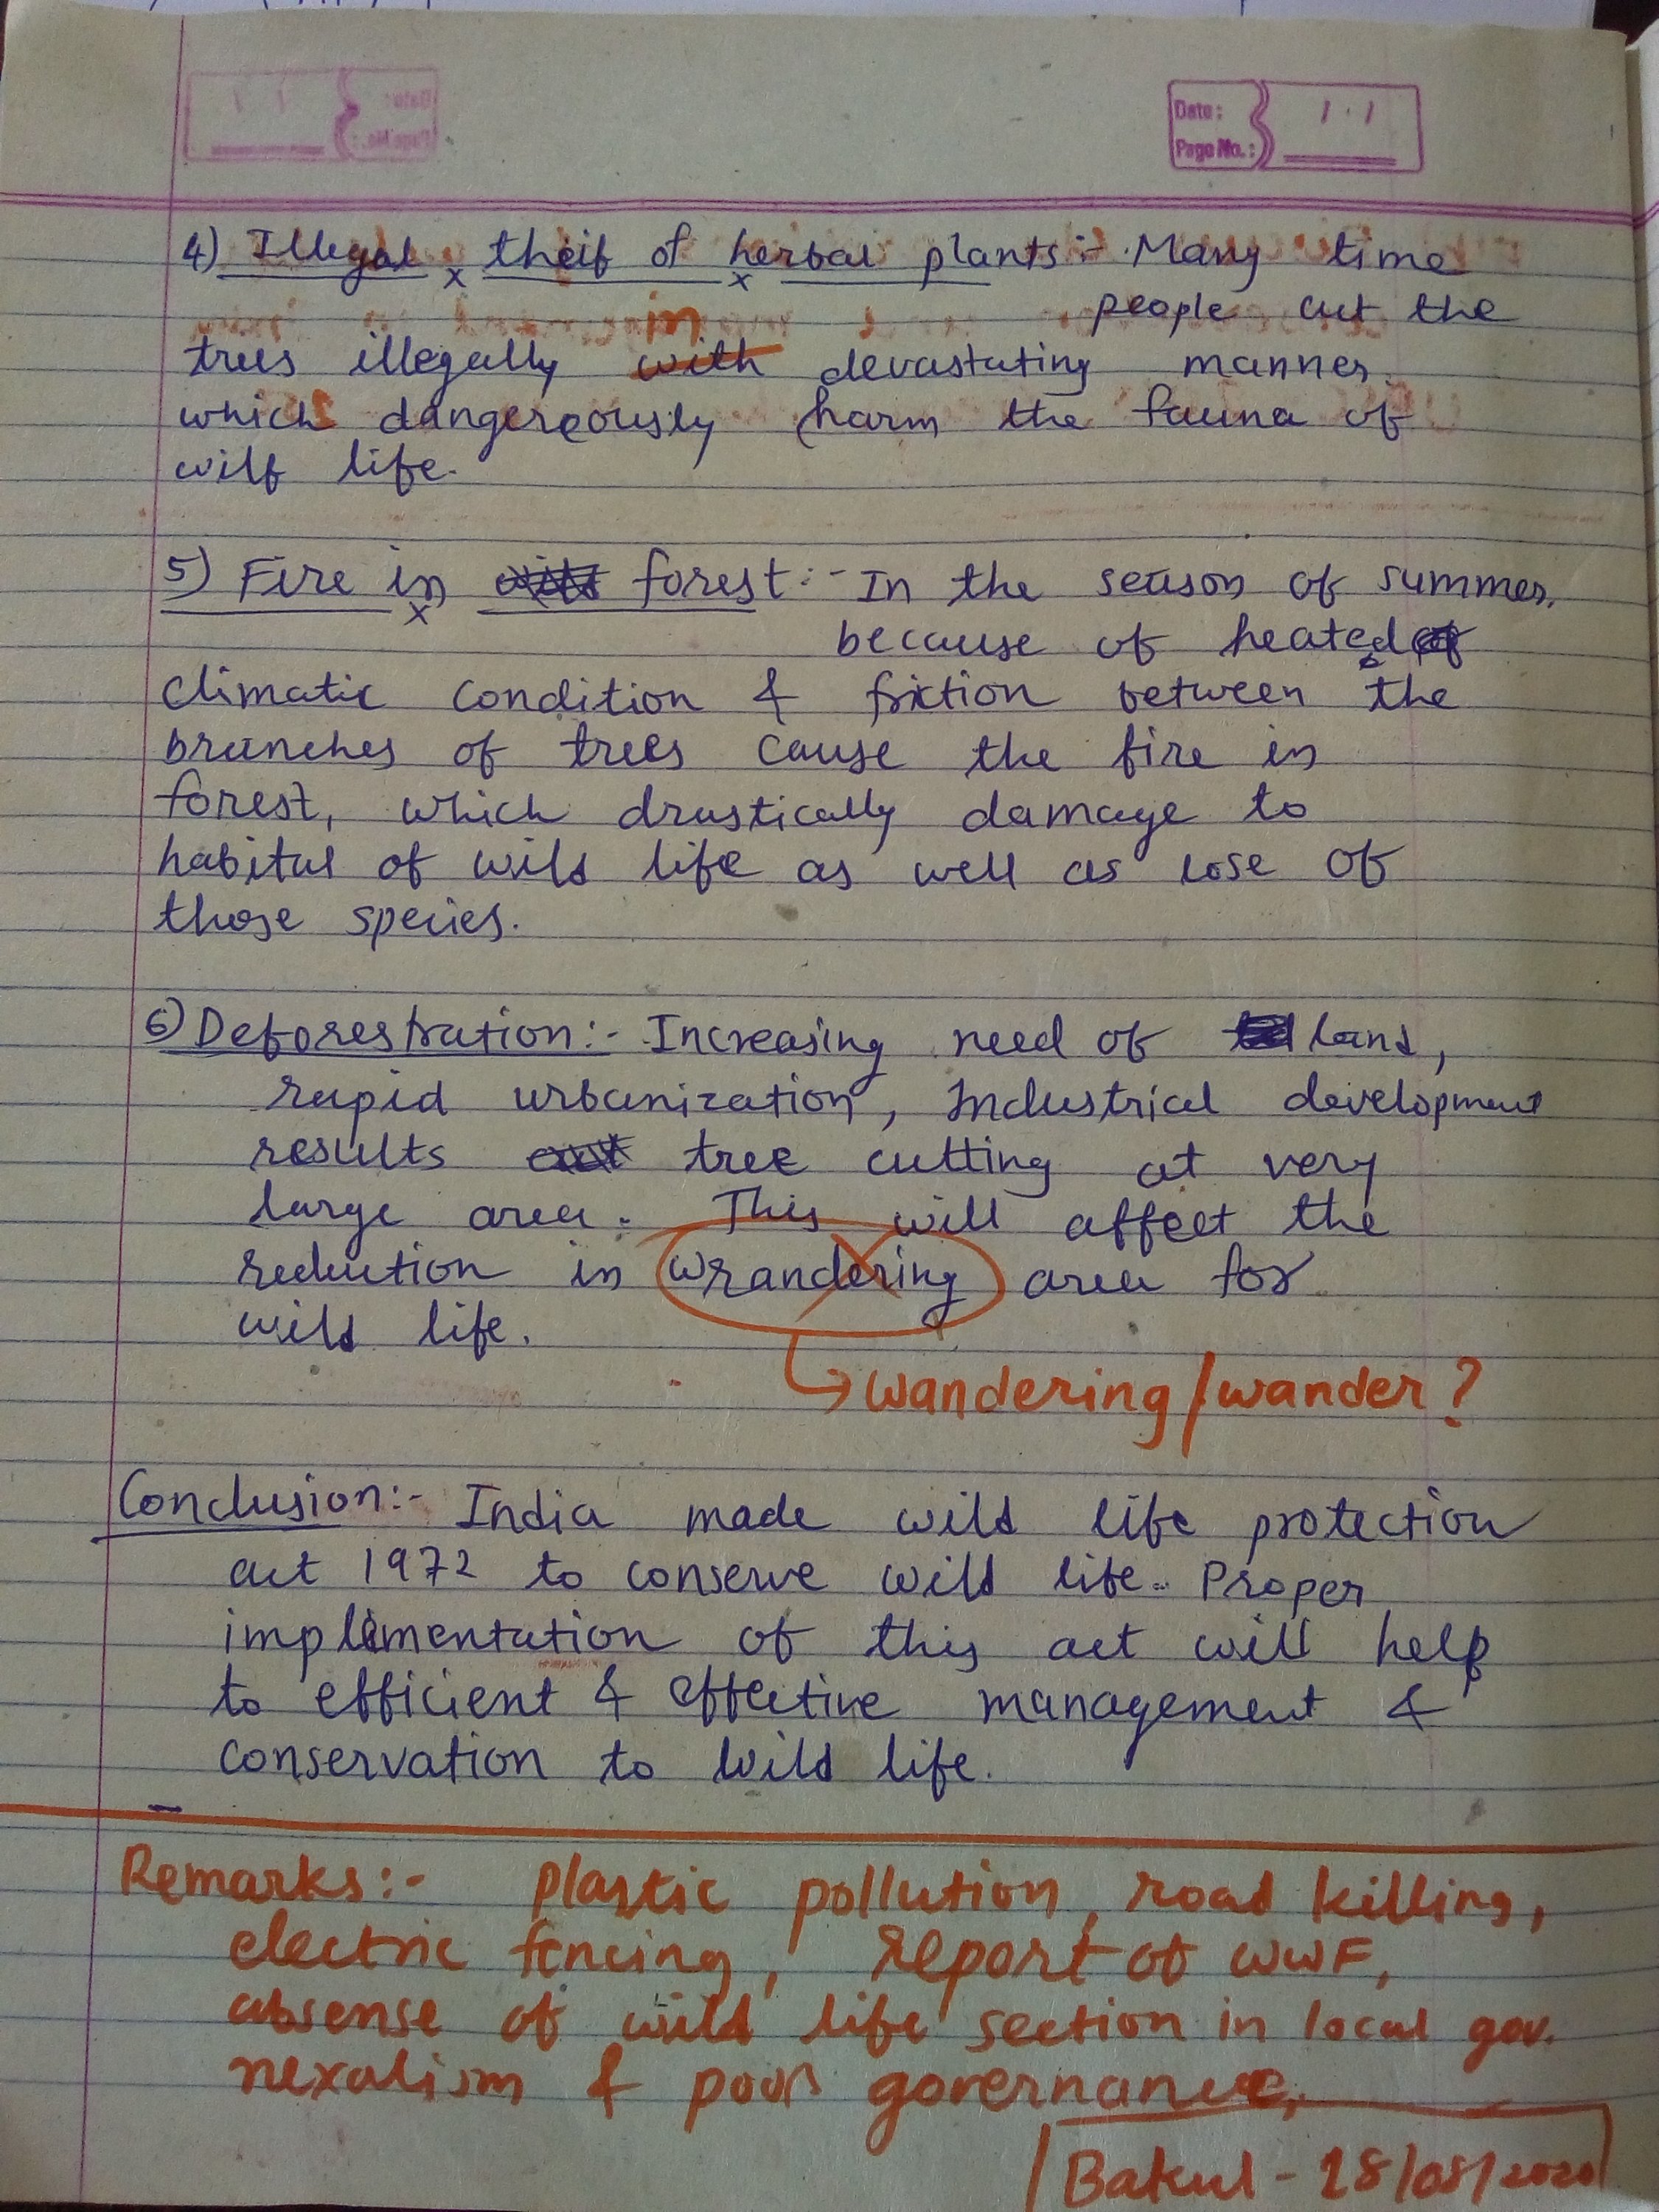 Date:
Page No.:
4) Illegal theif of herbal plants:- Many time
people cut the
in
trees illegally with devastating manner
which dangereously harm the fauna of
wilf life.
5) Fire in forest:- In the season of summer,
because of heated
climatic condition & friction between the
branches of trees cause the fire in
forest, which drastically damage to
habitat of wild life as well as lose of
those species.
6) Deforestration:- Increasing need of land,
rapid urbanization, Industrial development
results tree cutting at very
large area. This will affect the
reduction in wrandering area for
wild life.
↳ wandering/wander?
Conclusion:- India made wild life protection
act 1972 to conserve wild life. Proper
implimentation of this act will help
to efficient & effective management &
conservation to wild life.
Remarks:- plastic pollution, road killing,
electric fencing, report of WWF,
absense of wild life section in local gov.
nexalism & poor governance,
Bakul - 28/08/2020